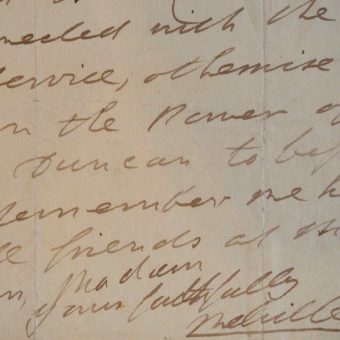 nected with the
Service, otherwise
in the Power of
Duncan to be
remember me
friends at
Madam
yours faithfully
Melville